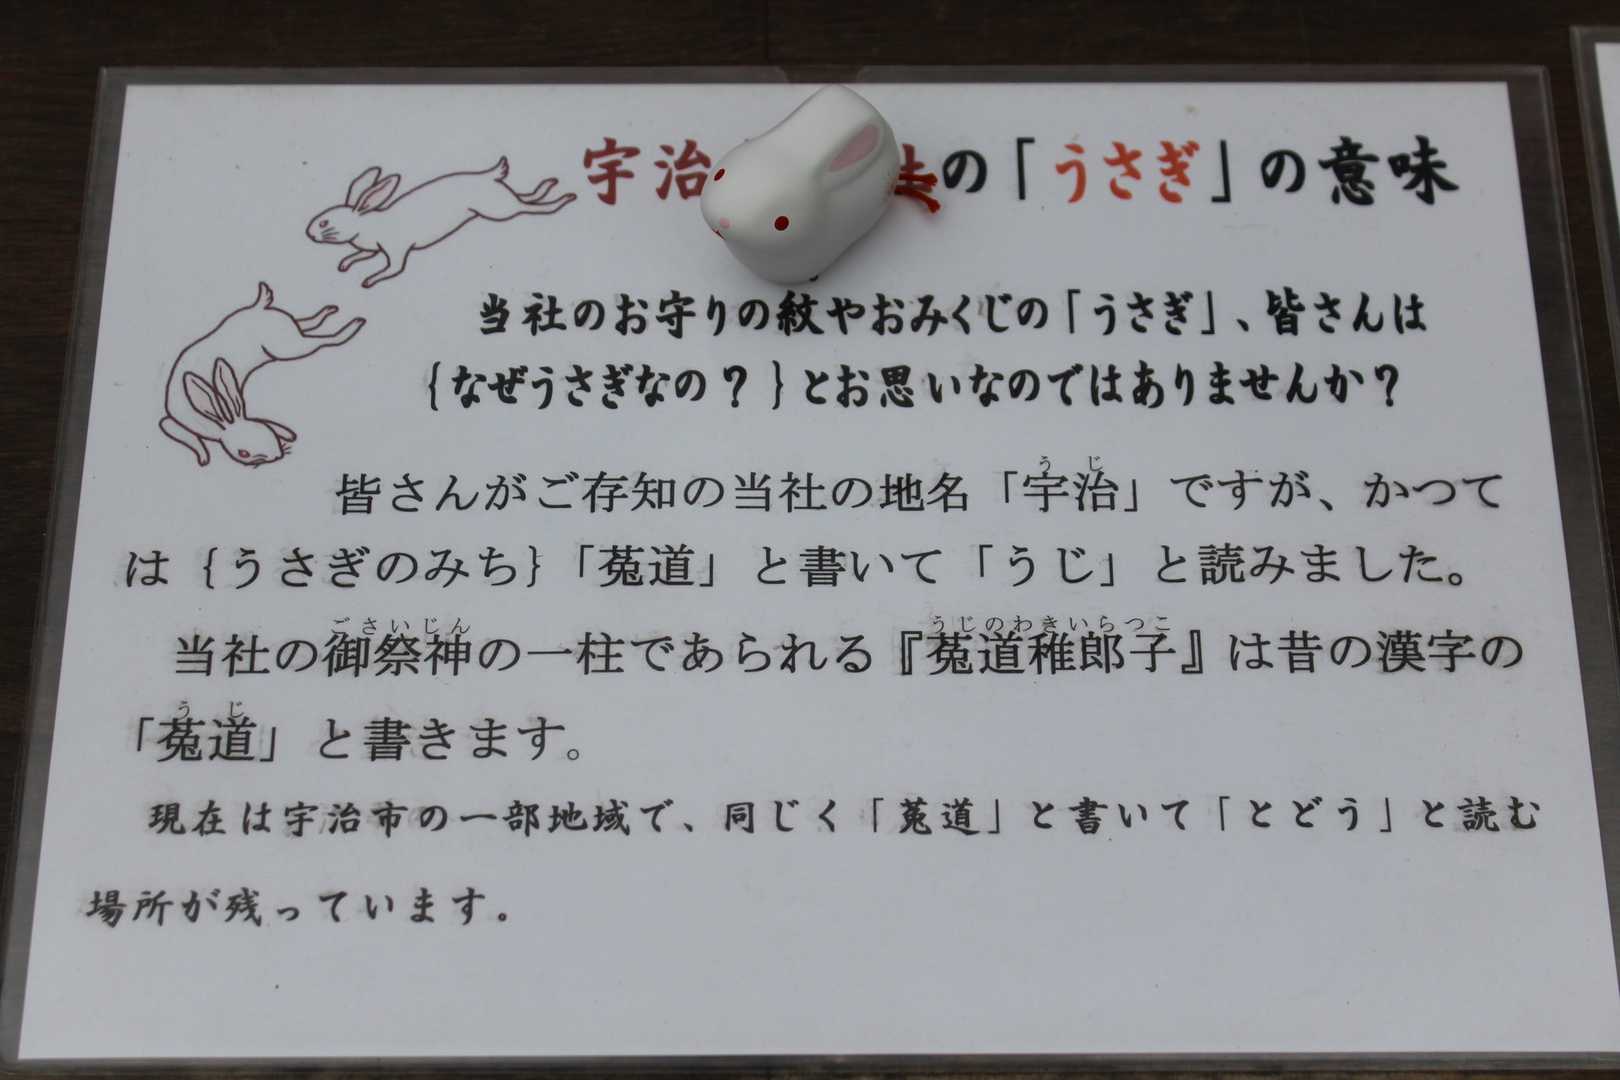 宇治の「うさぎ」の意味
当社のお守りの紋やおみくじの「うさぎ」、皆さんは
{なぜうさぎなの?}とお思いなのではありませんか?
うじ
皆さんがご存知の当社の地名「宇治」ですが、かつて
は{うさぎのみち}「菟道」と書いて「うじ」と読みました。
ごさいじん うじのわきいらつこ
当社の御祭神の一柱であられる『菟道稚郎子』は昔の漢字の
うじ
「菟道」と書きます。
現在は宇治市の一部地域で、同じく「菟道」と書いて「とどう」と読む
場所が残っています。